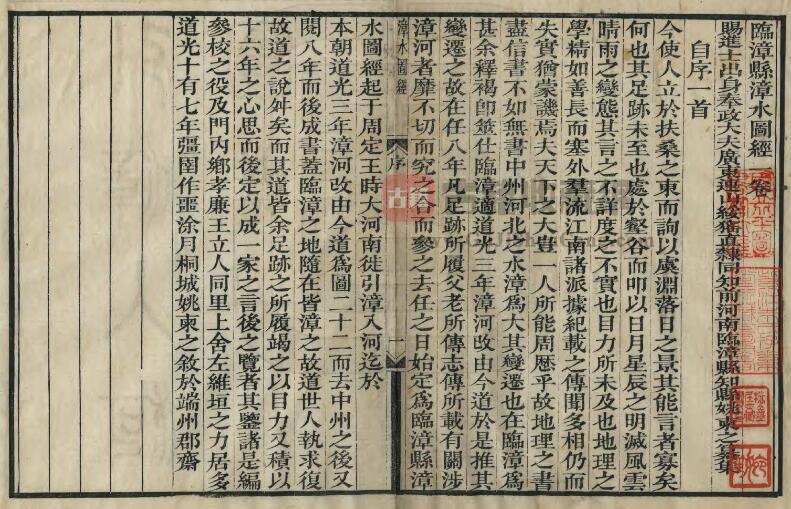 臨漳縣漳水圖經一卷
賜進士出身奉政大夫廣東連山綏猺直隸同知前河南臨漳縣知縣姚柬之纂集
自序一首
今使人立於扶桑之東而詢以虞淵落日之景其能言者寡矣
何也其足跡未至也處於壑谷而叩以日月星辰之明滅風雲
晴雨之變態其言之不詳度之不實也目力所未及也地理之
學精如善長而塞外羣流江南諸派據紀載之傳聞多相仍而
失實猶蒙譏焉夫天下之大豈一人所能周歷乎故地理之書
盡信書不如無書中州河北之水漳爲大其變遷也在臨漳爲
甚余釋褐卽筮仕臨漳適道光三年漳河改由今道於是推其
變遷之故在任八年凡足跡所履父老所傳志傳所載有關涉
漳河者靡不切而究之合而參之去任之日始定爲臨漳縣漳
漳水圖經
序
一
水圖經起于周定王時大河南徙引漳入河迄於
本朝道光三年漳河改由今道爲圖二十二而去中州之後又
閱八年而後成書蓋臨漳之地隨在皆漳之故道世人執求復
故道之說舛矣而其道皆余足跡之所履竭之以目力又積以
十六年之心思而後定以成一家之言後之覽者其鑒諸是編
參校之役及門內鄉孝廉王立人同里上舍左維垣之力居多
道光十有七年彊圉作噩涂月桐城姚柬之敘於端州郡齋
古籍